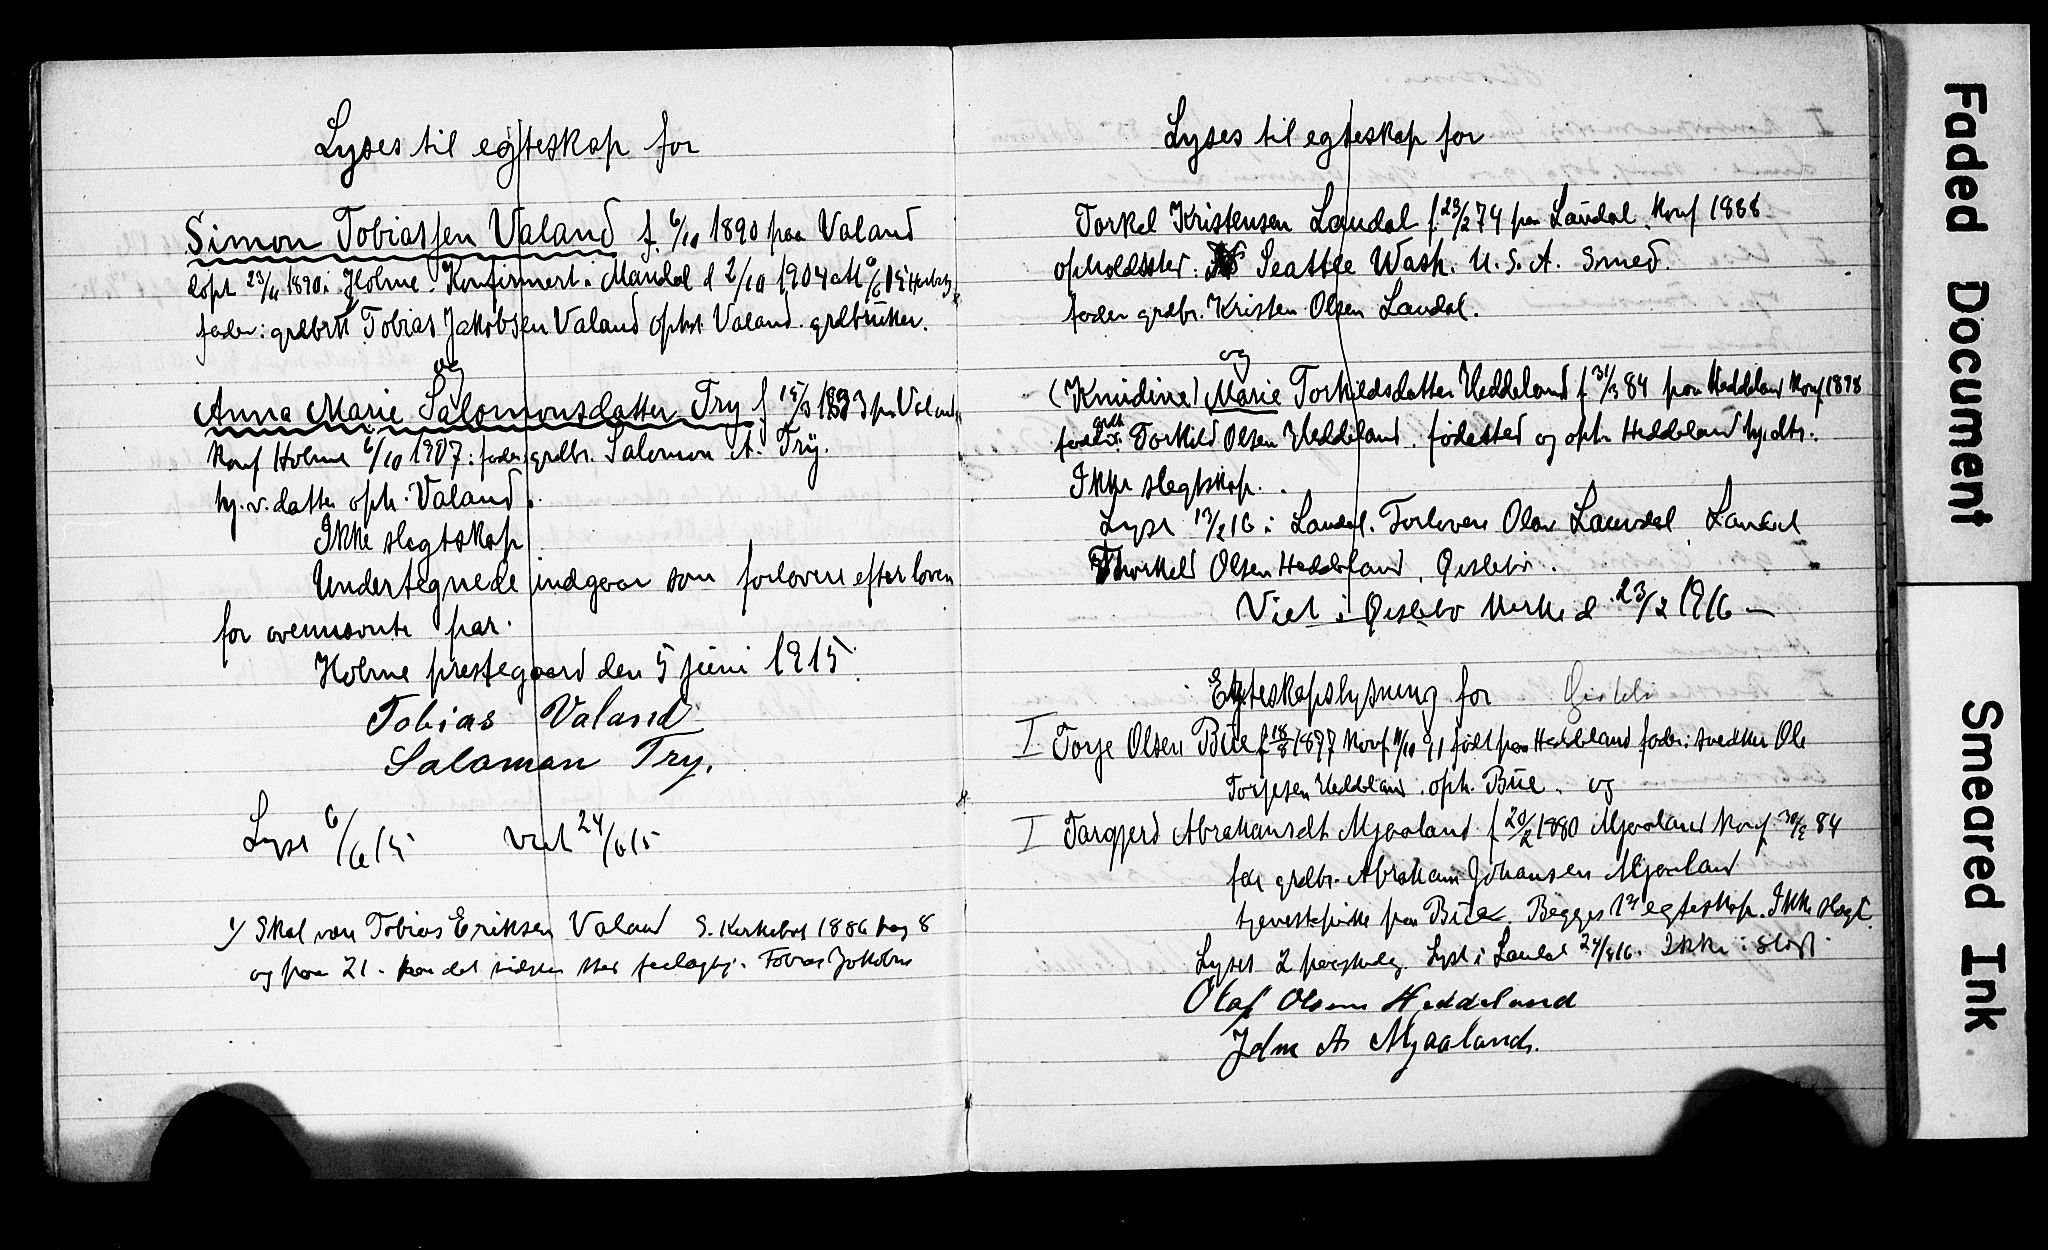 Lyses til egteskap for
Simon Tobiassen Valand f. 6/10 1890 paa Valand
døpt 23/11 1890 i Holme. Konfirmert i Mandal d 2/10 1904
fader: grdbr Tobias Jakobsen Valand opht Valand. grdbruker.
og
Anna Marie Salomonsdatter Try f 15/3 1893 paa Valand
konf Holme 6/10 1907: fader grdbr. Salomon A. Try.
hj. v. datter oph. Valand.
Ikke slegtskap
Undertegnede indgaar som forlovere efter loven
for ovennævnte par.
Holme prestegaard den 5 juni 1915.
Tobias Valand
Salaman Try.
Lyst 6/6 15 Viet 24/6 15
1/ Skal være Tobias Eriksen Valand S. Kirkebok 1886 pag 8
og paa 21. paa det sidste sted Tobias Jakobsen
Lyses til egteskap for
Torkel Kristensen Laudal f. 23/2 74 paa Laudal. Konf 1888
opholdssted: Seattle Wash. U.S.A. Smed.
fader grdbr. Kristen Olsen Laudal.
og
(Knudine) Marie Torkildsdatter Heddeland f 31/3 84 paa Heddeland Konf 1898
fader grdb. Torkild Olsen Heddeland. fødested og oph. Heddeland hj. dtr.
Ikke slegtskap.
Lyst 13/2 16 i Laudal. Forlovere Olav Laudal, Laudal
Thorkeld Olsen Heddeland, Øislebø.
Viet i Øislebø kirke d. 23/2 1916
Egteskapslysning for
I Torje Olsen Bue f 18/8 1877 konf 11/10 91 født paa Heddeland fader: snedker Ole
Torjesen Heddeland. oph. Bue. og
I Targjerd Abrahamsdt Mjaaland f 20/2 1880 Mjaaland konf 84
far grdbr. Abraham Johansen Mjaaland
tjenestepike paa Bue. Begges 1ste egteskap. Ikke slegt.
Lyses 2 Lyst i Laudal 24/4 16. Ikke i slegt.
Olaf Olsen Heddeland
John A. Mjaaland.
Faded Document
Smeared Ink